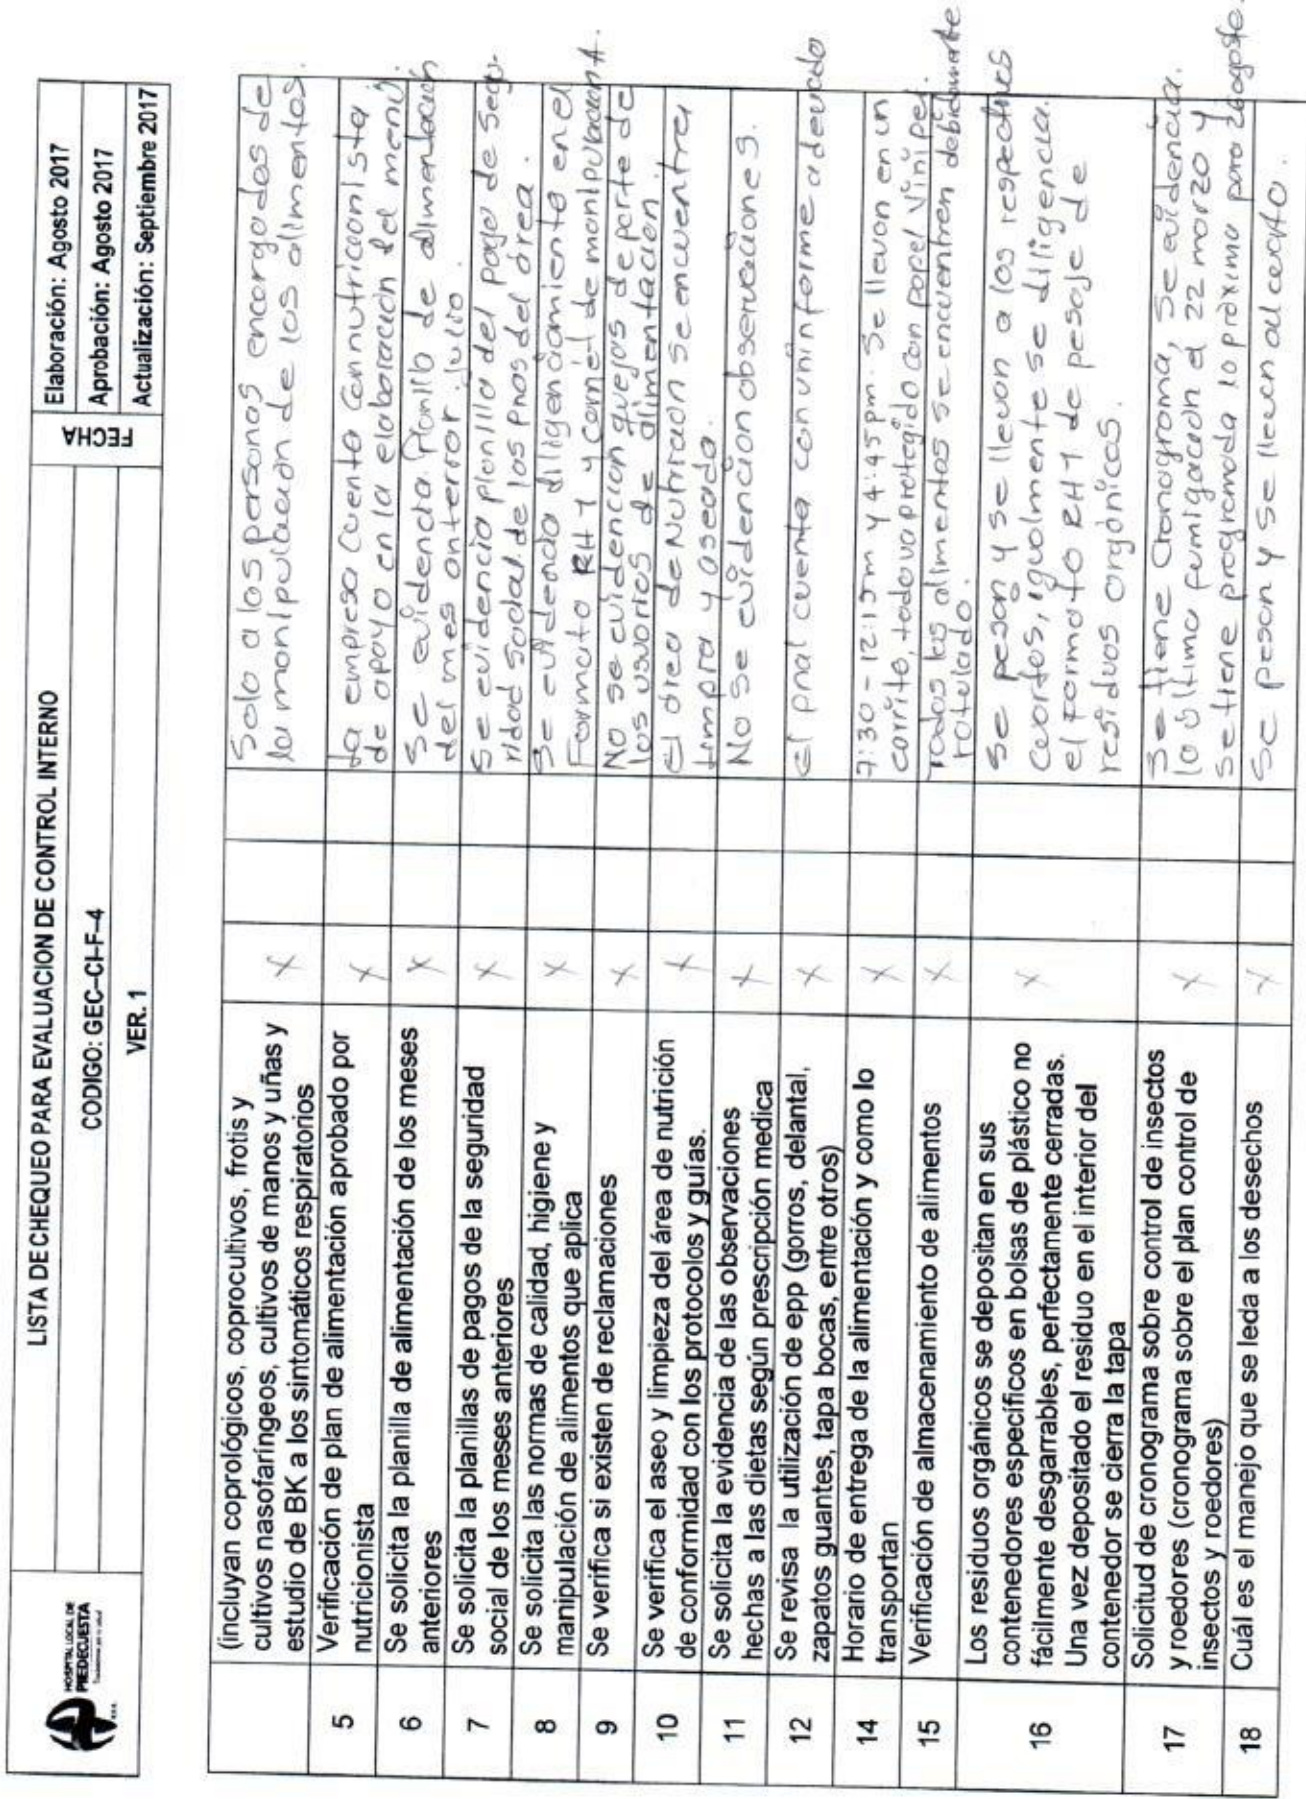 HOSPITAL LOCAL DE
PIEDECUESTA
E.S.E.
LISTA DE CHEQUEO PARA EVALUACION DE CONTROL INTERNO
CODIGO: GEC–CI-F-4
VER. 1
FECHA
Elaboración: Agosto 2017
Aprobación: Agosto 2017
Actualización: Septiembre 2017
(incluyan coprológicos, coprocultivos, frotis y
cultivos nasofaríngeos, cultivos de manos y uñas y
estudio de BK a los sintomáticos respiratorios
X
Solo a las personas encargadas de
la manipulación de los alimentos.
5
Verificación de plan de alimentación aprobado por
nutricionista
X
La empresa cuenta con nutricionista
de apoyo en la elaboración del menú.
6
Se solicita la planilla de alimentación de los meses
anteriores
X
Se evidencia Planilla de alimentación
del mes anterior julio.
7
Se solicita la planillas de pagos de la seguridad
social de los meses anteriores
X
Se evidencia planilla del pago de segu-
ridad social de los pnas del área.
8
Se solicita las normas de calidad, higiene y
manipulación de alimentos que aplica
X
Se evidencia diligenciamiento en el
Formato RH1 y carnét de manipulación A.
9
Se verifica si existen de reclamaciones
X
No se evidencian quejas de parte de
los usuarios de alimentación
10
Se verifica el aseo y limpieza del área de nutrición
de conformidad con los protocolos y guías.
X
El área de Nutrición se encuentra
limpia y aseada.
11
Se solicita la evidencia de las observaciones
hechas a las dietas según prescripción medica
X
No se evidencian observaciones.
12
Se revisa la utilización de epp (gorros, delantal,
zapatos guantes, tapa bocas, entre otros)
X
El pnal cuenta con uniforme adecuado
14
Horario de entrega de la alimentación y como lo
transportan
X
7:30 - 12:15m y 4:45pm. Se llevan en un
carrito, todo va protegido con papel Vinipel
15
Verificación de almacenamiento de alimentos
X
Todos los alimentos se encuentren debidamente
rotulado.
16
Los residuos orgánicos se depositan en sus
contenedores específicos en bolsas de plástico no
fácilmente desgarrables, perfectamente cerradas.
Una vez depositado el residuo en el interior del
contenedor se cierra la tapa
X
Se pesan y se llevan a los respectivos
cuartos, igualmente se diligencia
el formato RH1 de pesaje de
residuos orgánicos.
17
Solicitud de cronograma sobre control de insectos
y roedores (cronograma sobre el plan control de
insectos y roedores)
X
Se tiene Cronograma, se evidencia.
la última fumigación el 22 marzo y
se tiene programada la próxima para 26 agosto.
18
Cuál es el manejo que se leda a los desechos
X
Se pesan y se llevan al cuarto.